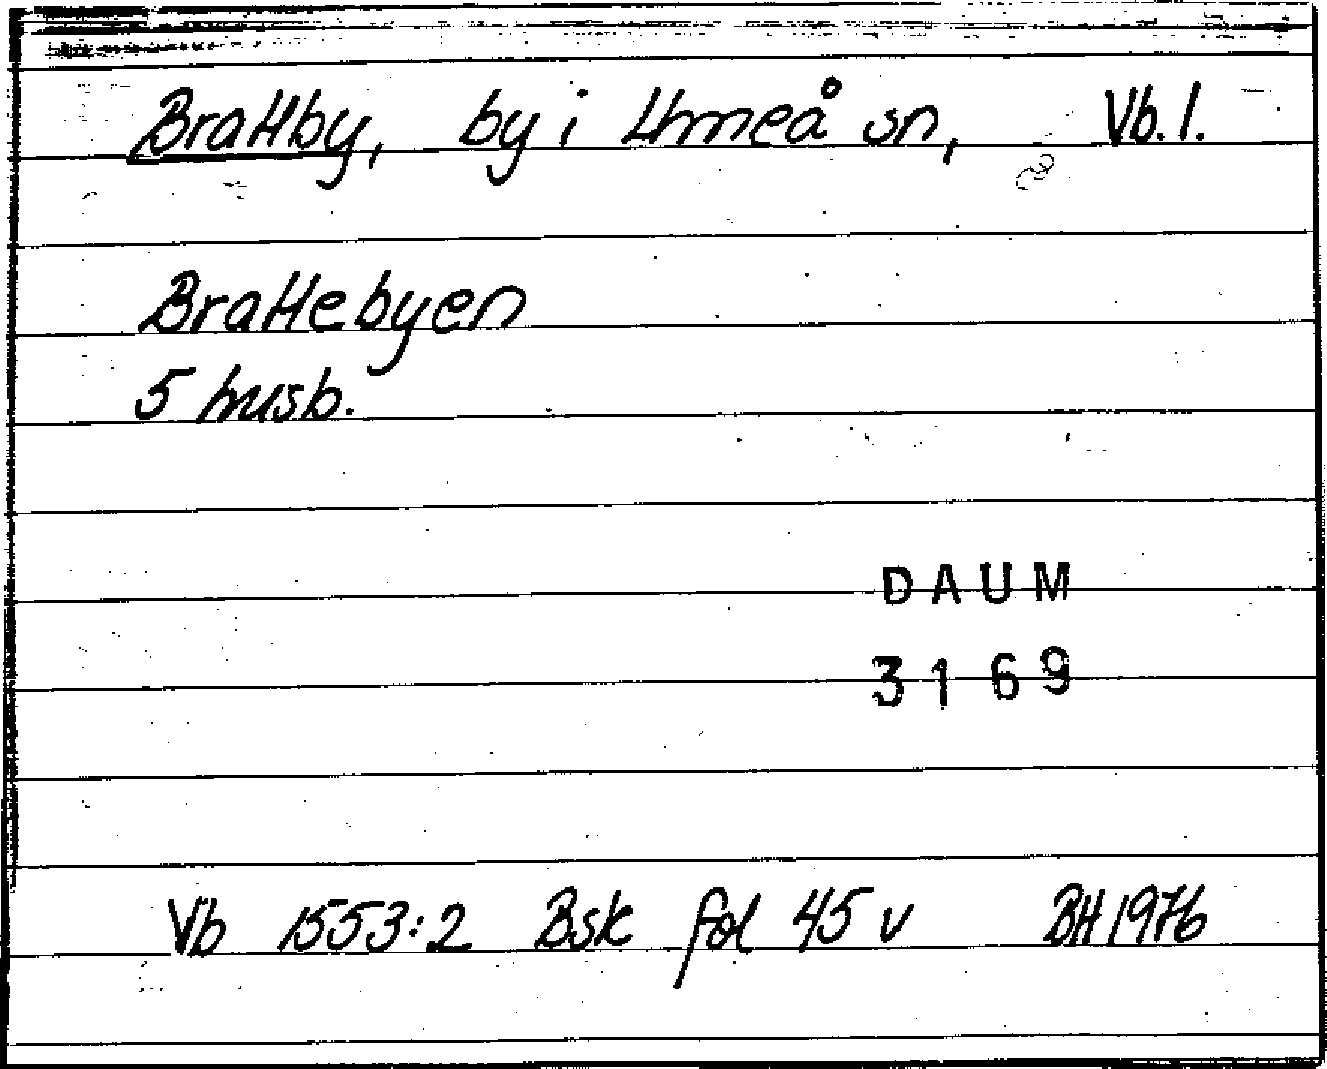 Brattby, by i Umeå sn, Vb. l.
Brattebyen
5 husb.
DAUM
3169
Vb 1553:2 Bsk fol 45 v BH 1976